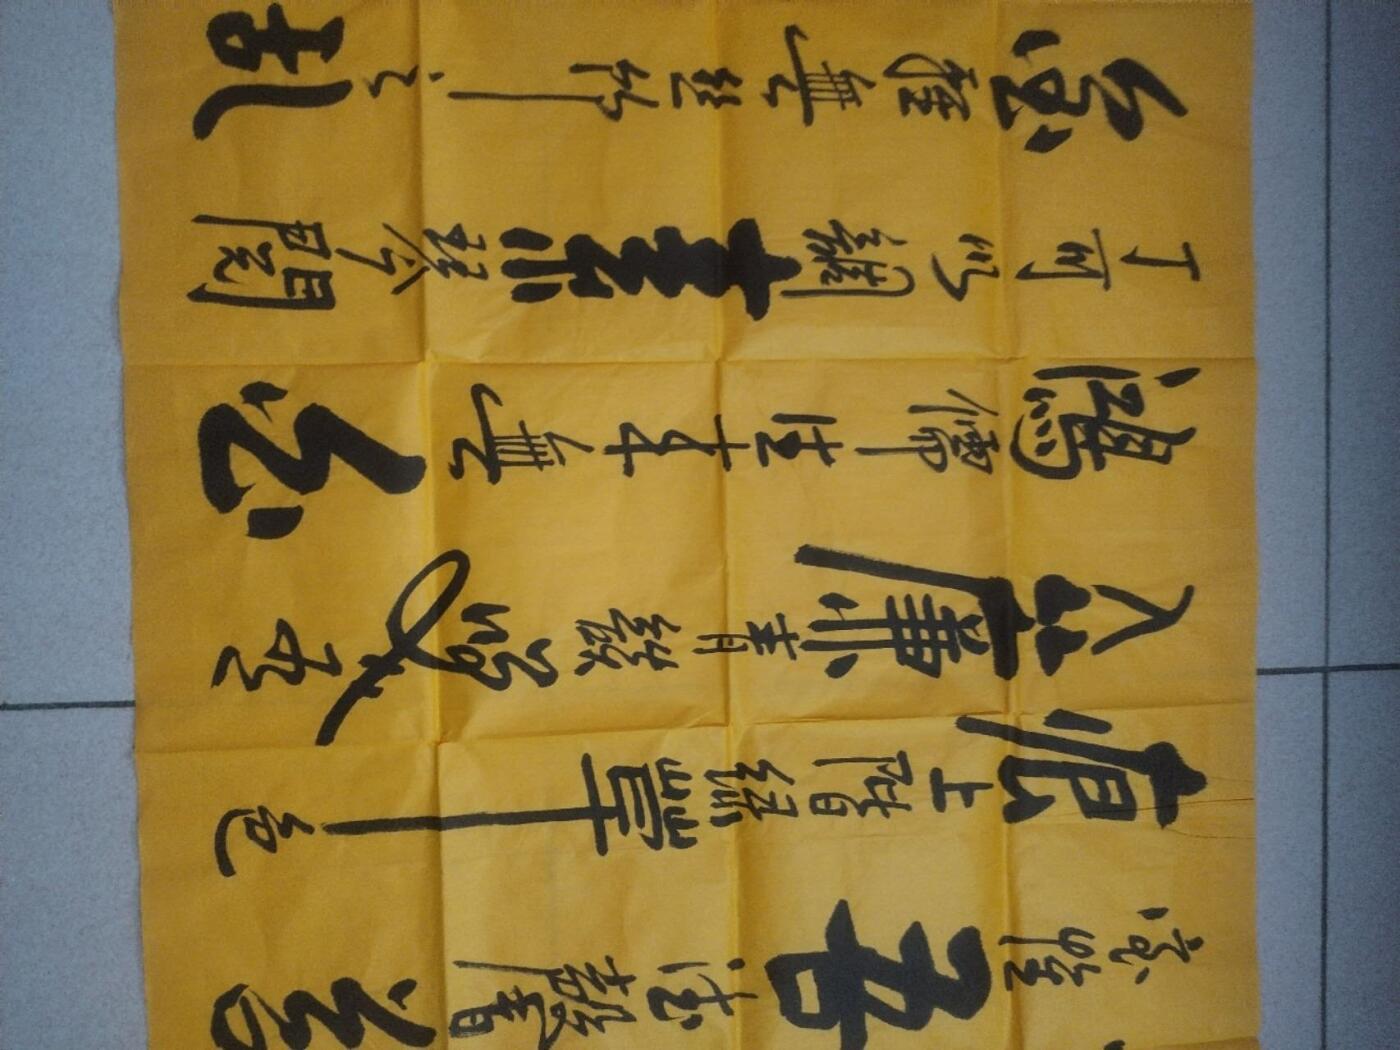 室惟吾德馨苔
痕上階綠草色
入簾青談笑有
鴻儒往來無白
丁可以調素琴閱
金經無絲竹之亂